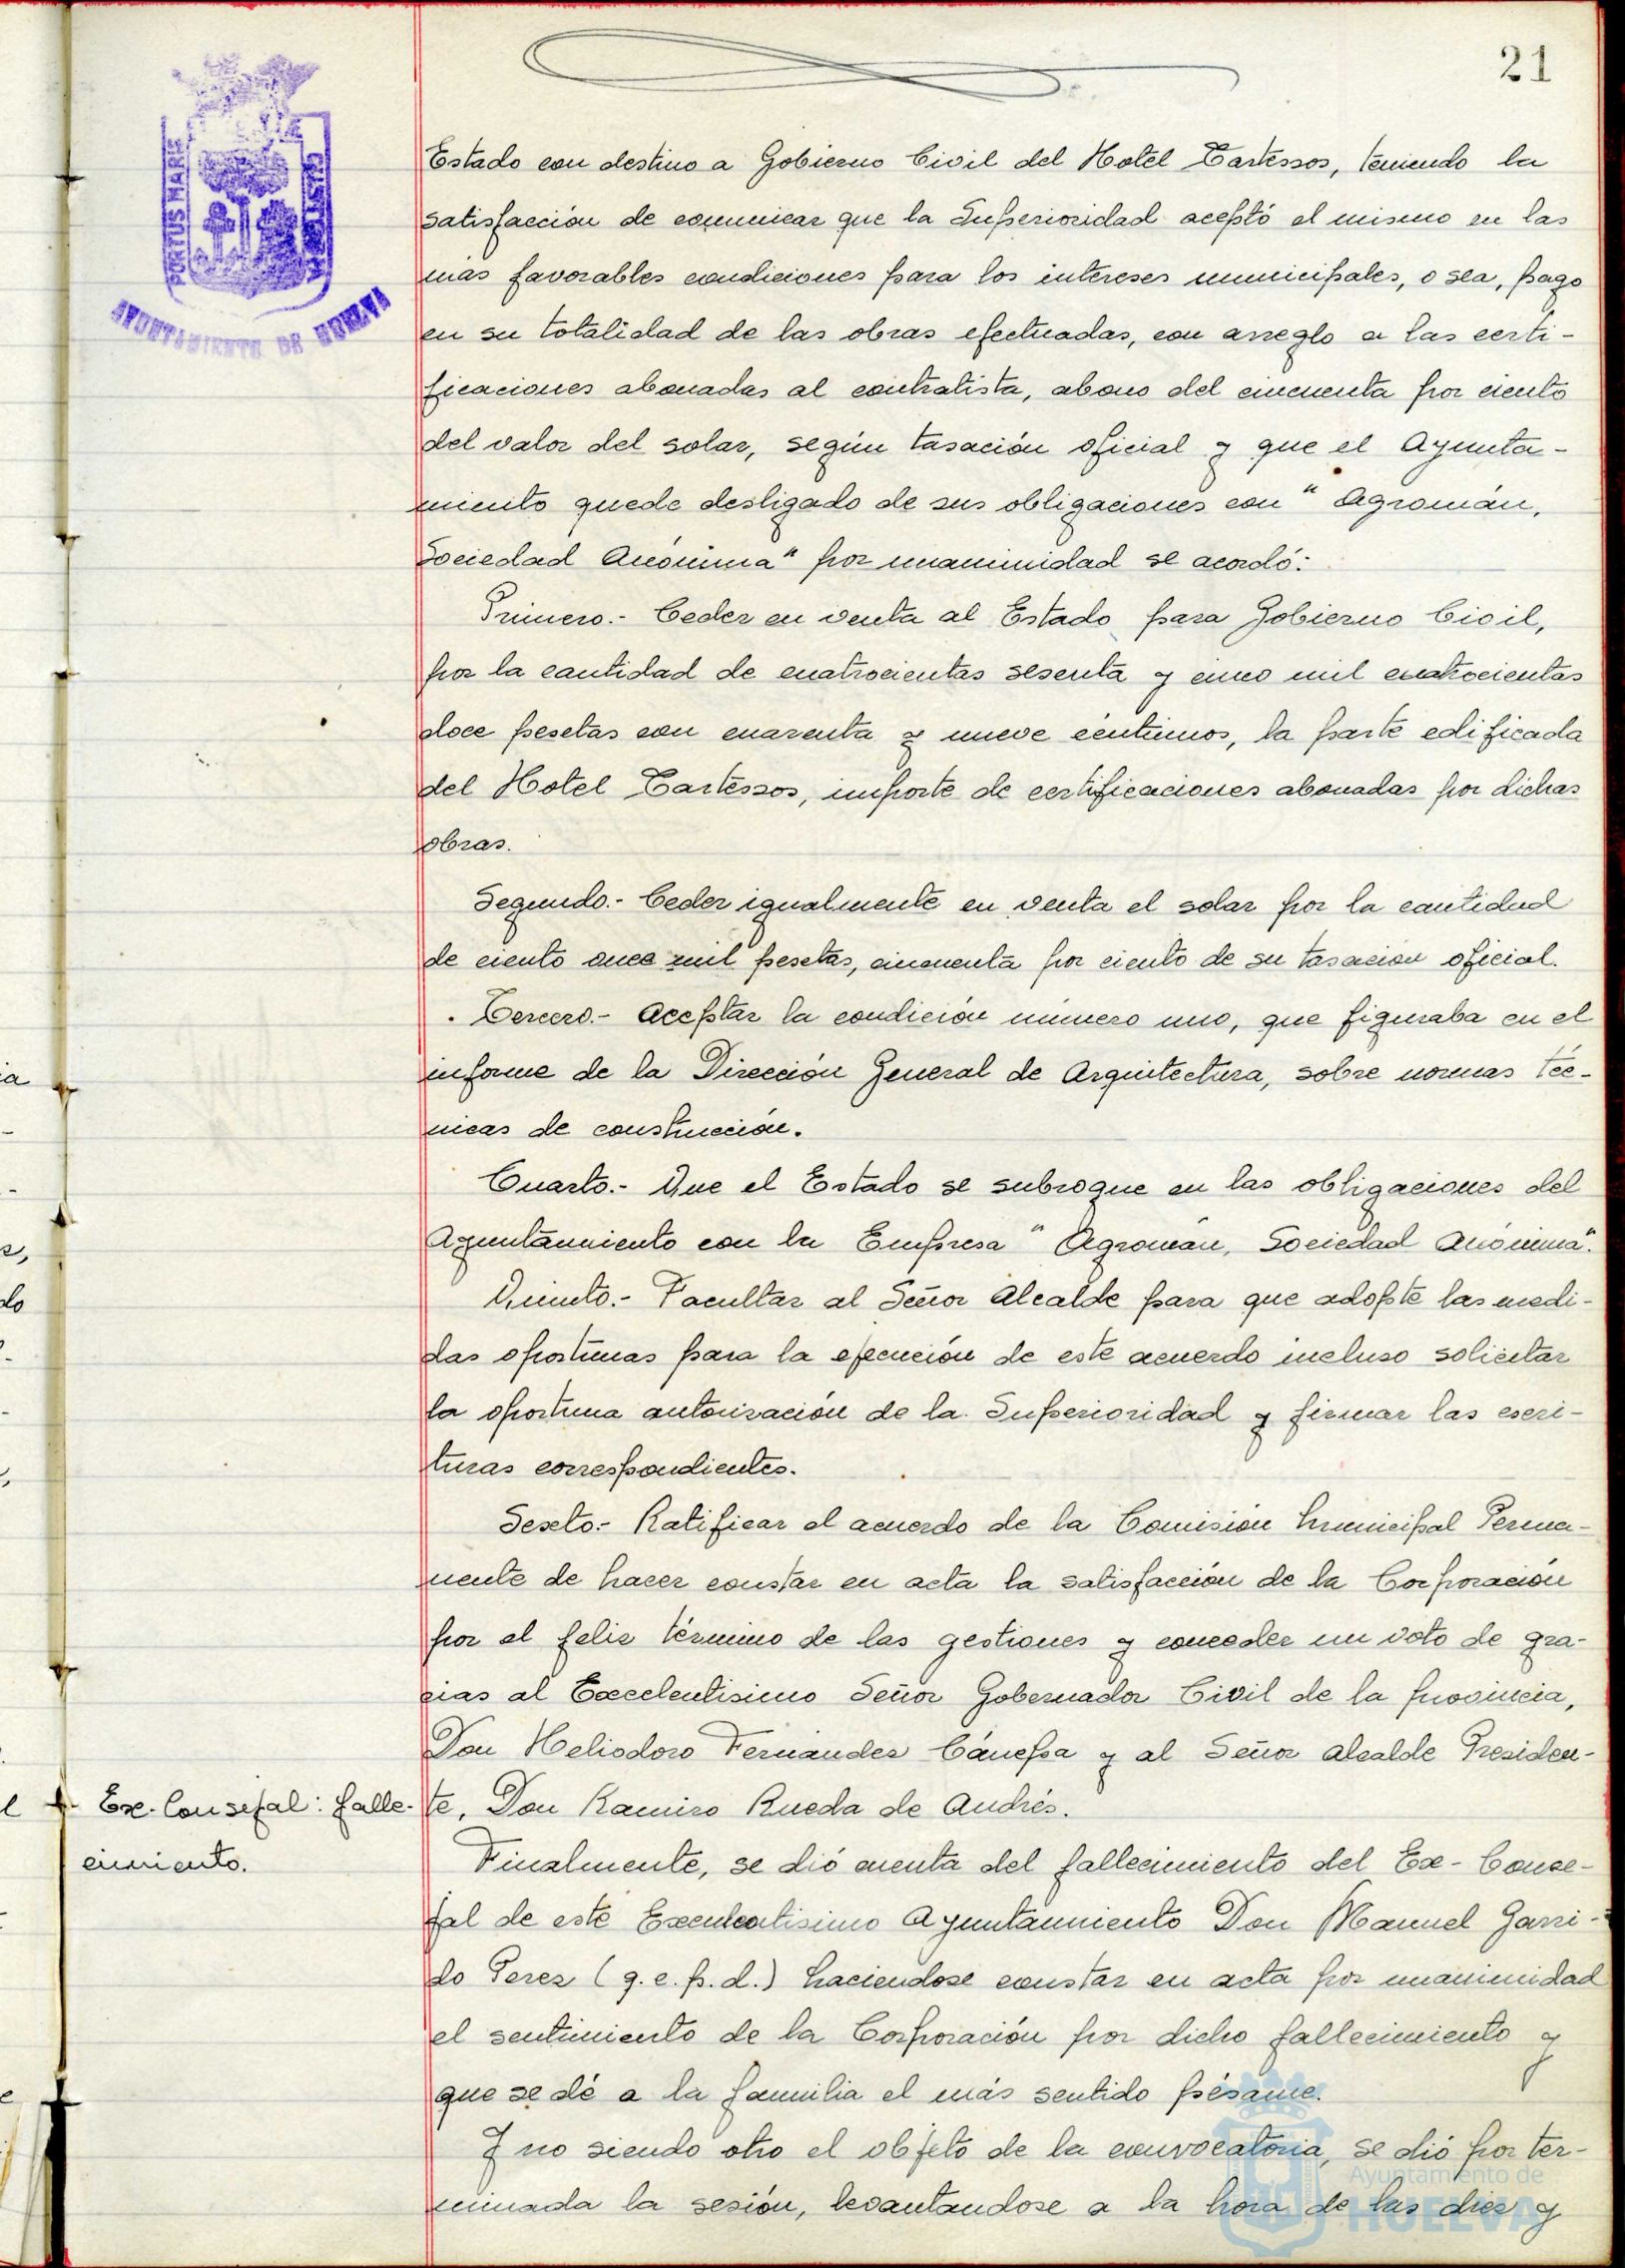 21
PORTUS MARIS
AYUNTAMIENTO DE HUELVA
Estado con destino a Gobierno Civil del Hotel Tartessos, teniendo la
satisfacción de comunicar que la Superioridad aceptó el mismo en las
mas favorables condiciones para los intereses municipales, o sea, pago
en su totalidad de las obras efectuadas, con arreglo a las certi-
ficaciones abonadas al contratista, abono del cincuenta por ciento
del valor del solar, según tasación oficial y que el Ayunta-
miento quede desligado de sus obligaciones con "Agromán,
Sociedad Anónima" por unanimidad se acordó:
Primero.- Ceder en venta al Estado para Gobierno Civil,
por la cantidad de cuatrocientas sesenta y cinco mil cuatrocientas
doce pesetas con cuarenta y nueve céntimos, la parte edificada
del Hotel Tartessos, importe de certificaciones abonadas por dichas
obras.
Segundo.- Ceder igualmente en venta el solar por la cantidad
de ciento once mil pesetas, cincuenta por ciento de su tasacion oficial.
Tercero.- Aceptar la condición número uno, que figuraba en el
informe de la Dirección General de Arquitectura, sobre normas téc-
nicas de construcción.
Cuarto.- Que el Estado se subrogue en las obligaciones del
Ayuntamiento con la Empresa "Agromán, Sociedad Anónima".
Quinto.- Facultar al Señor Alcalde para que adopte las medi-
das oportunas para la ejecución de este acuerdo incluso solicitar
la oportuna autorización de la Superioridad y firmar las escri-
turas correspondientes.
Sexto.- Ratificar el acuerdo de la Comisión Municipal Perma-
nente de hacer constar en acta la satisfacción de la Corporación
por el feliz término de las gestiones y conceder un voto de gra-
cias al Excelentisimo Señor Gobernador Civil de la provincia,
Don Heliodoro Fernandez Cánepa y al Señor Alcalde Presiden-
te, Don Ramiro Rueda de Andrés.
Ex-Consejal: falle-
cimiento.
Finalmente, se dió cuenta del fallecimiento del Ex-Conse-
jal de este Excelentisimo Ayuntamiento Don Manuel Garri-
do Perez (q.e.p.d.) haciendose constar en acta por unanimidad
el sentimiento de la Corporación por dicho fallecimiento y
que se dé a la familia el más sentido pésame.
Y no siendo otro el objeto de la convocatoria, se dió por ter-
minada la sesión, levantandose a la hora de las diez y
Ayuntamiento de
HUELVA